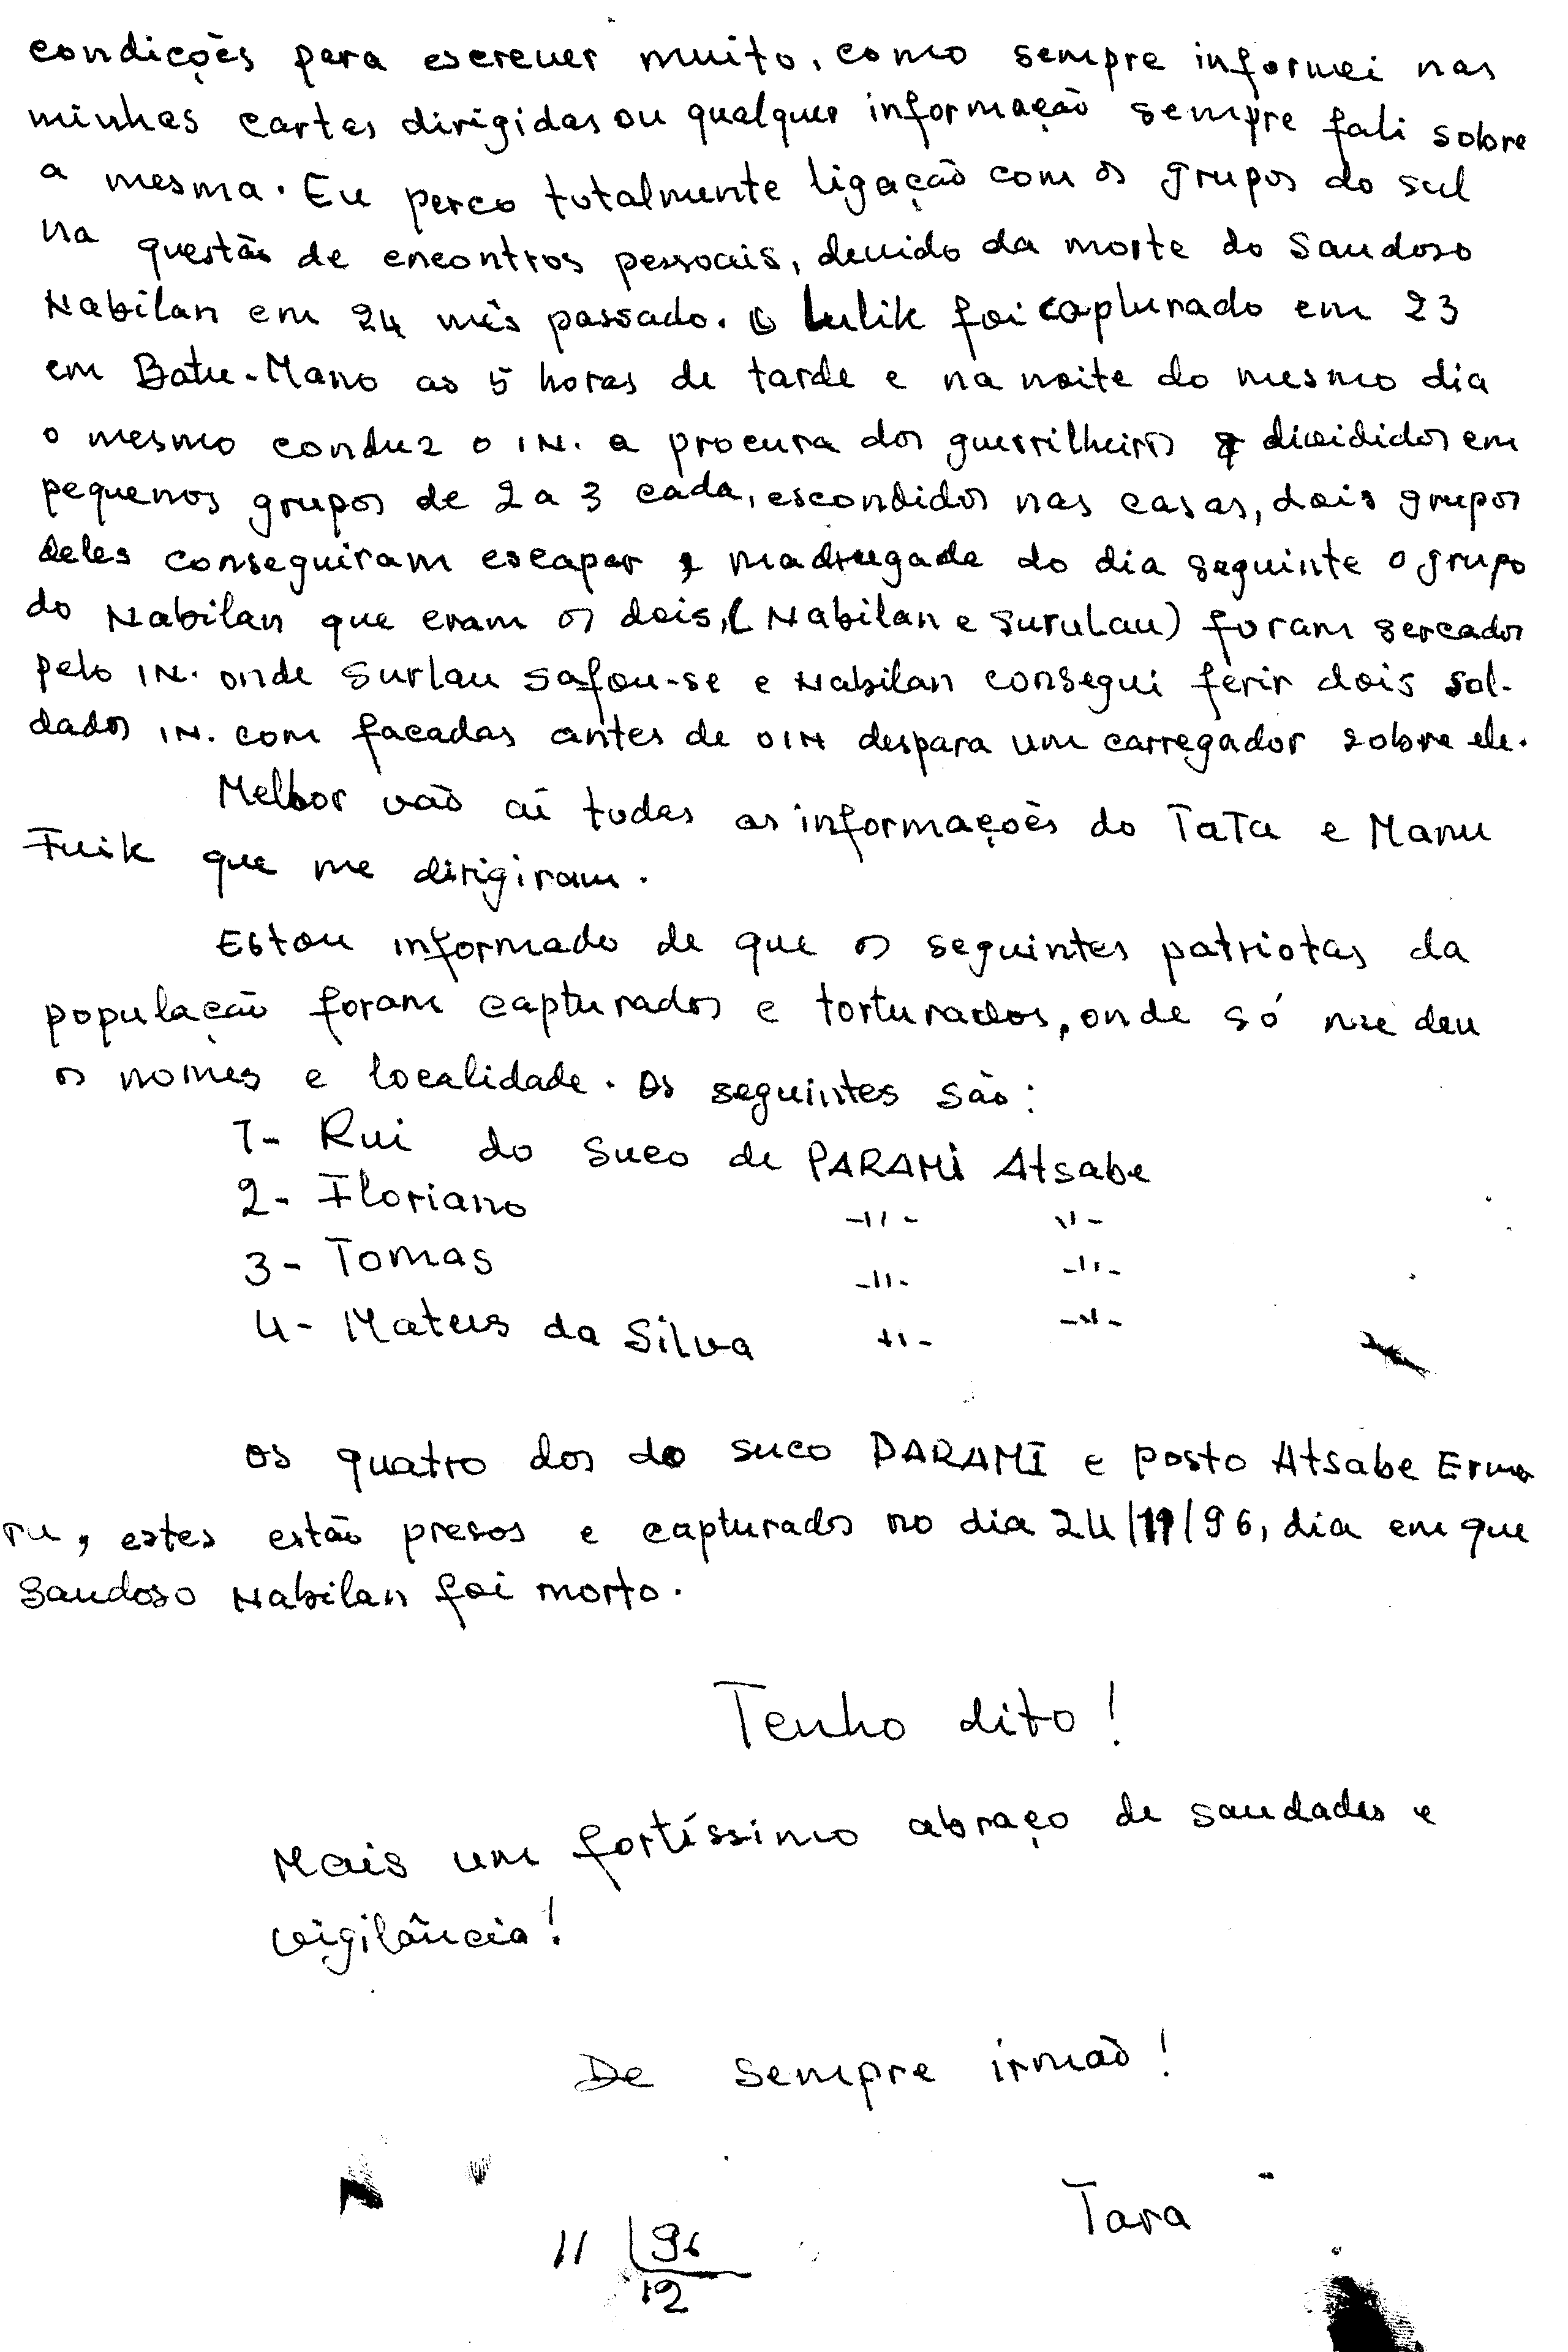 condições para escrever muito, como sempre informei nas
minhas cartas dirigidas ou qualquer informação sempre fali sobre
a mesma. Eu perco totalmente ligação com os grupos do sul
na questão de encontros pessoais, devido da morte do Saudoso
Nabilan em 24 mês passado. O Lulik foi capturado em 23
em Batu-Mano as 5 horas de tarde e na noite do mesmo dia
o mesmo conduz o IN. a procura dos guerrilheiros divididos em
pequenos grupos de 2 a 3 cada, escondidos nas casas, dois grupos
deles conseguiram escapar e madrugada do dia seguinte o grupo
do Nabilan que eram os dois, (Nabilan e Surulau) foram sercados
pelo IN. onde Surlau safou-se e Nabilan consegui ferir dois sol-
dados IN. com facadas antes de o IN despara um carregador sobre ele.
Melhor vão aí todas as informações do TaTa e Manu
Fuik que me dirigiram.
Estou informado de que os seguintes patriotas da
população foram capturados e torturados, onde só me deu
os nomes e localidade. Os seguintes são:
1- Rui do Suco de PARAMI Atsabe
2- Floriano -//- -//-
3- Tomas -//- -//-
4- Mateus da Silva -//- -//-
Os quatro dos do suco PARAMI e posto Atsabe Erme
ru, estes estão presos e capturados no dia 24/11/96, dia em que
Saudoso Nabilan foi morto.
Tenho dito!
Mais um fortíssimo abraço de saudades e
vigilância!
De sempre irmão!
Tara
11 | 96
12